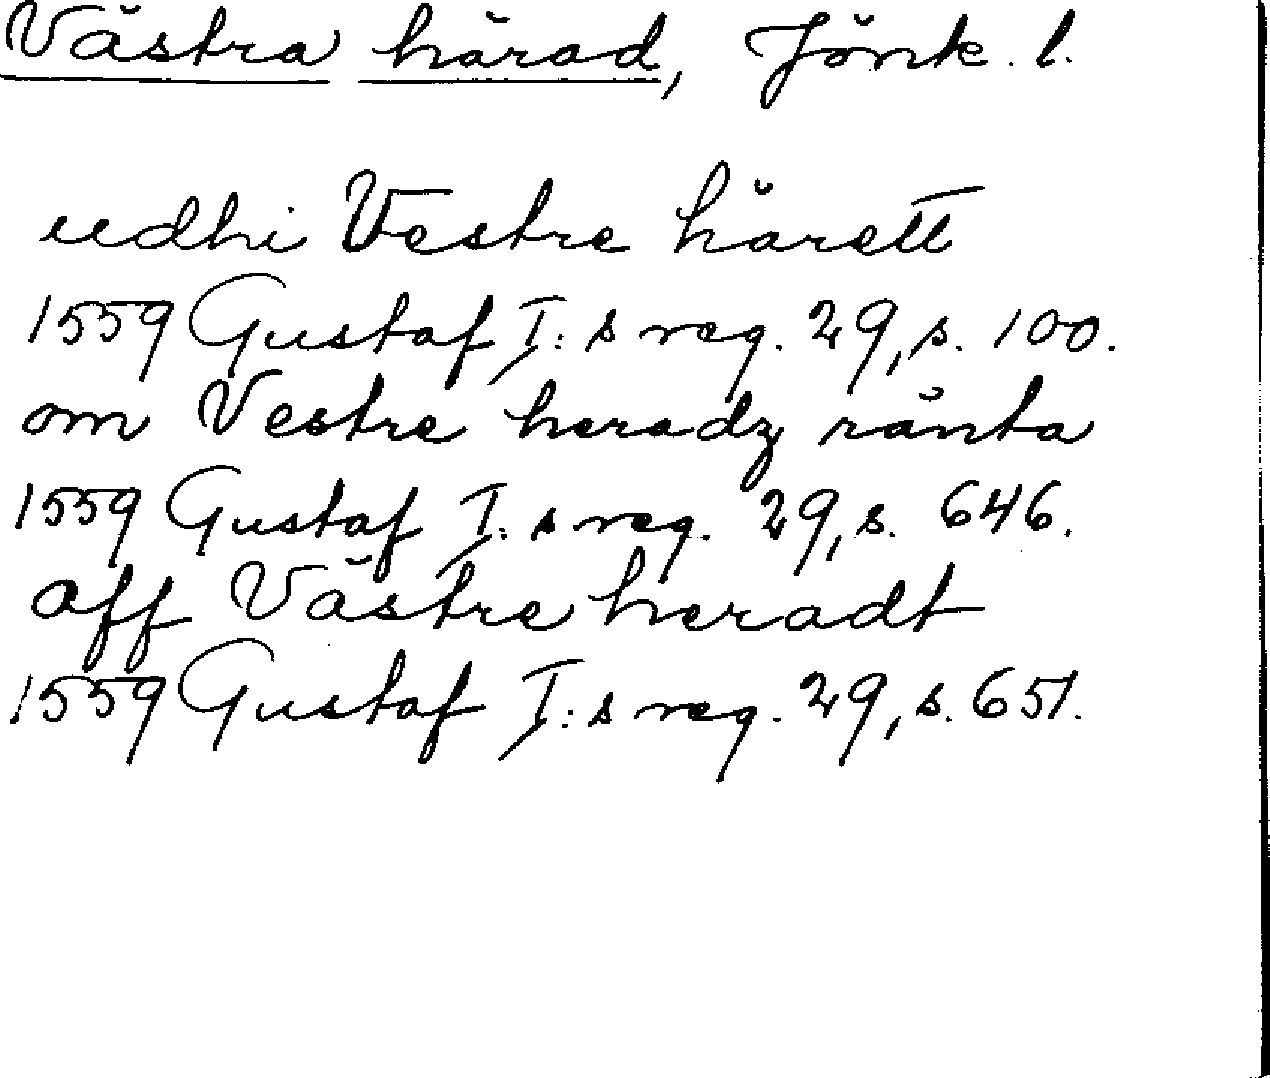 Västra härad, Jönk. l.
udhi Vestre härett
1559 Gustaf I:s reg. 29, s. 100.
om Vestre heradz ränta
1559 Gustaf I:s reg. 29, s. 646.
aff Västre heradt
1559 Gustaf I:s reg. 29, s. 651.